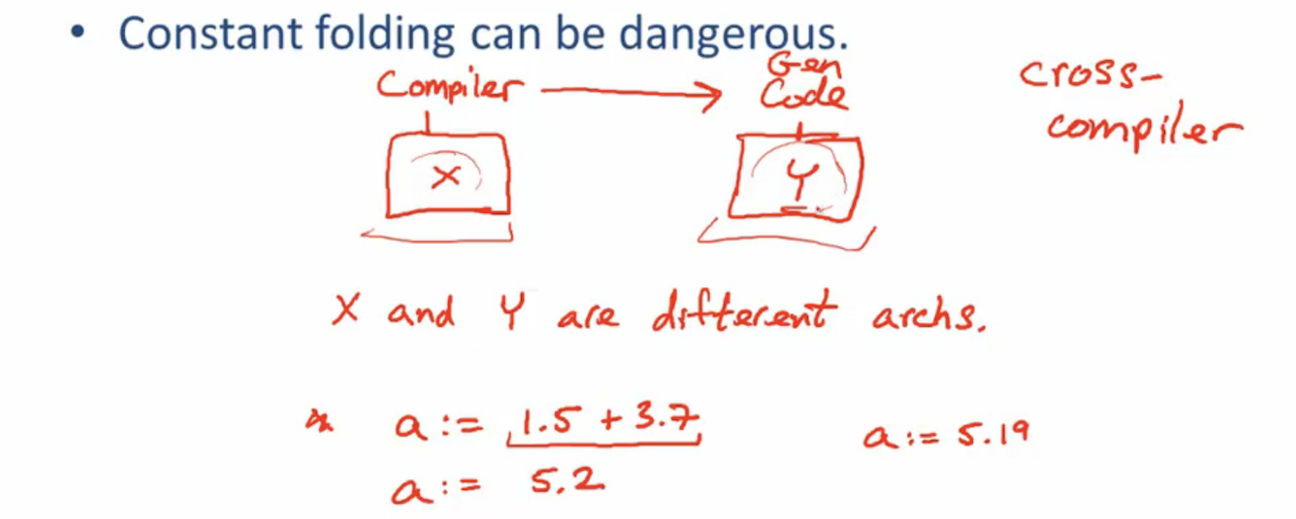 • Constant folding can be dangerous.
Compiler
Gen
Code
cross-
compiler
X
Y
X and Y are different archs.
a := 1.5 + 3.7
a := 5.19
a := 5.2